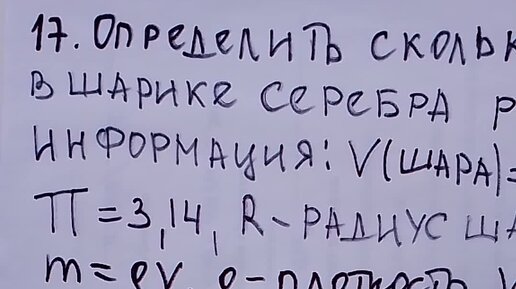 17. ОПРЕДЕЛИТЬ СКОЛЬК
В ШАРИКЕ СЕРЕБРА Р
ИНФОРМАЦИЯ: V(ШАРА)=
П=3,14, R-РАДИУС ША
m=ρV, ρ-ПЛОТНОСТЬ